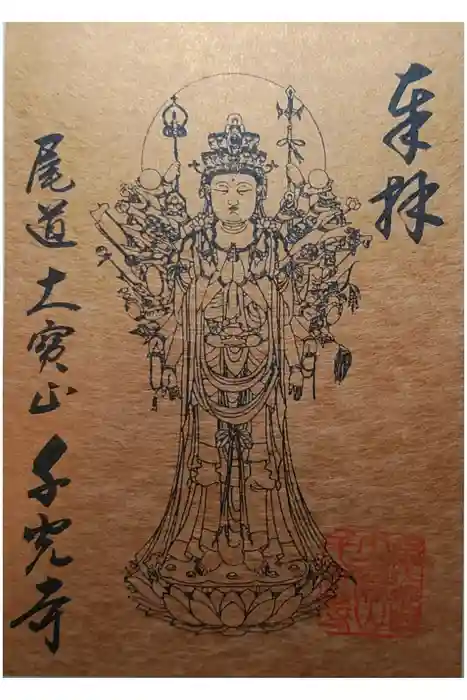 奉拝
尾道 大宝山 千光寺